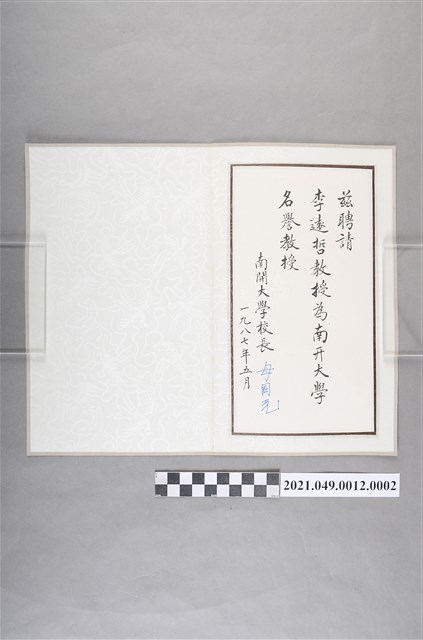 茲聘請
李遠哲教授為南开大學
名譽教授
南開大學校長 母国光
一九八七年五月
2021.049.0012.0002